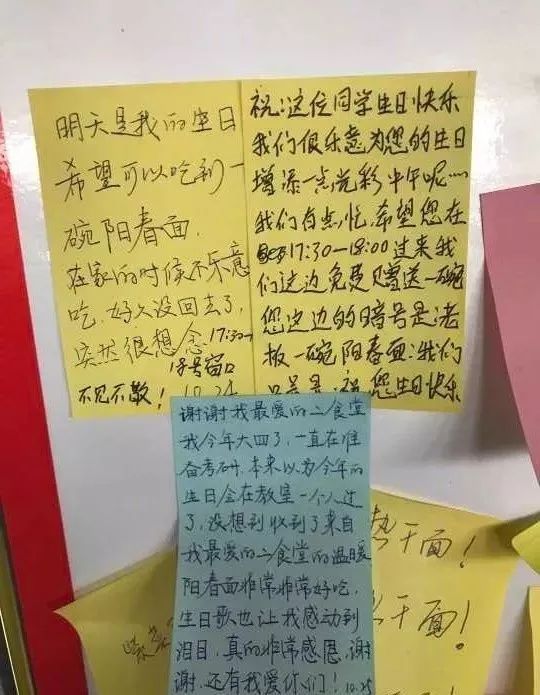 明天是我的生日
希望可以吃到一
碗阳春面。
在家的时候不乐意
吃，好久没回去了，
突然很想念
17:30—
1号窗口
不见不散！10.24
祝:这位同学生日快乐
我们很乐意为您的生日
增添一点光彩中午呢…
我们有点忙,希望您在
17:30—18:00过来我
们这边免费赠送一碗
您这边的暗号是:老
板一碗阳春面:我们
祝您生日快乐
谢谢我最爱的二食堂
我今年大四了,一直在准
备考研,本来以为今年的
生日会在教室一个人过
了,没想到收到了来自
我最爱的二食堂的温暖
阳春面非常非常好吃,
生日歌也让我感动到
泪目,真的非常感恩,谢
谢,还有我爱你们！10.25
热干面！
干面！